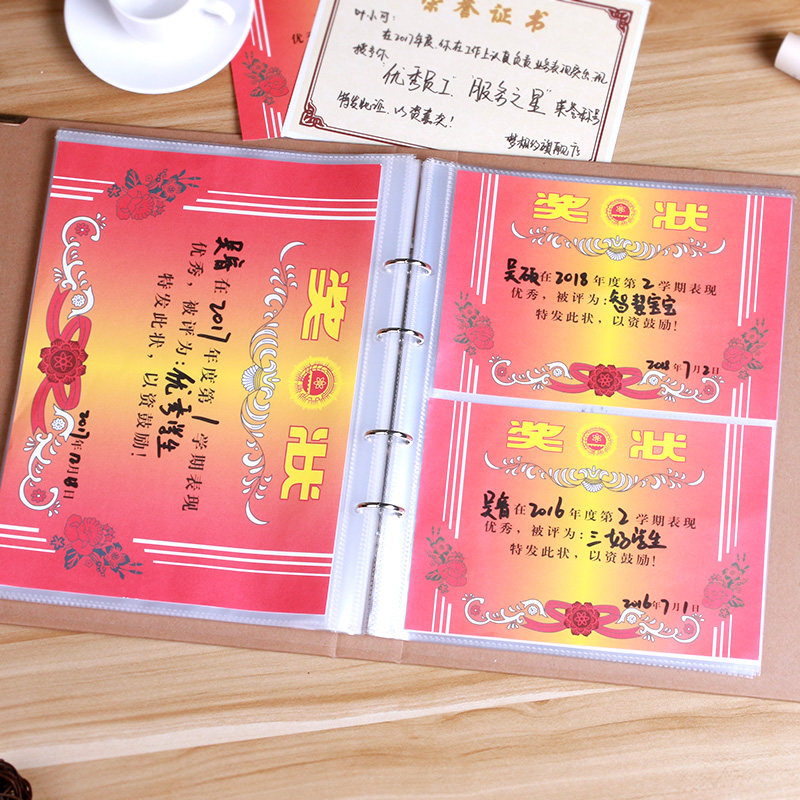 荣誉证书
叶小可：
在2017年度，你在工作上认真负责业务表现突出，现
授予你
"优秀员工" "服务之星" 荣誉称号
特发此证，以资嘉奖！
优
奖状
在2017年度第1学期表现
优秀，被评为：优秀学生
特发此状，以资鼓励！
2017年12月8日
奖状
吴硕在2018年度第2学期表现
优秀，被评为：智慧宝宝
特发此状，以资鼓励！
2018年7月2日
奖状
在2016年度第2学期表现
优秀，被评为：三好学生
特发此状，以资鼓励！
2016年7月1日